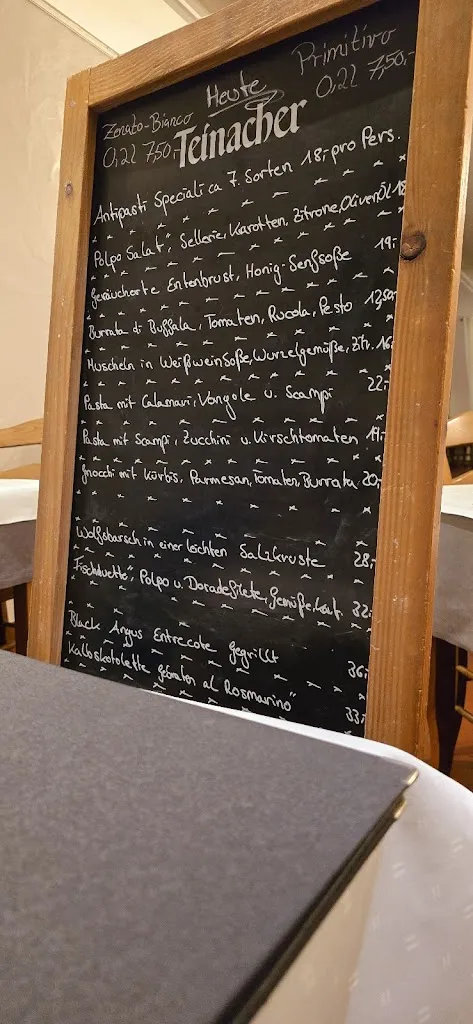 Heute
Zenato-Bianco
0,2l 7,50,-
Primitivo
0,2l 7,50,-
Teinacher
Antipasti Speciali ca 7. Sorten 18,- pro Pers.
Polpo Salat", Sellerie, Karotten, Zitrone, Olivenöl 18
Geräucherte Entenbrust, Honig-Senfsoße 19,-
Burrata di Buffala, Tomaten, Rucola, Pesto 17,50,-
Muscheln in Weißweinsoße, Wurzelgemüße, Zitr. 16,-
Pasta mit Calamari, Vongole u. Scampi 22,-
Pasta mit Scampi, Zucchini u. Kirschtomaten 19,-
Gnocchi mit Kürbis, Parmesan, Tomaten, Burrata 20,-
Wolfsbarsch in einer leichten Salzkruste 28,-
Fischduette", Polpo u. Doradefilete, Gemüße, kart. 32,-
Black Angus Entrecote gegrillt 36,-
Kalbskotolette gebraten al Rosmarino" 33,-